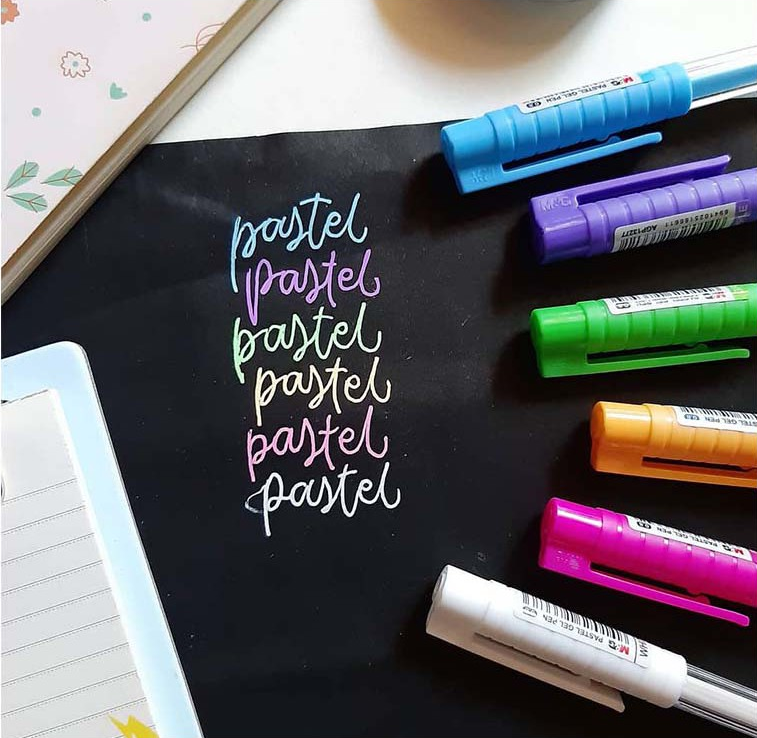 pastel
pastel
pastel
pastel
pastel
pastel
M&G PASTEL GEL PEN
M&G
6941025186611
AGP13277
M&G PASTEL GEL PEN
PASTEL GEL PEN
M&G
M&G PASTEL GEL PEN